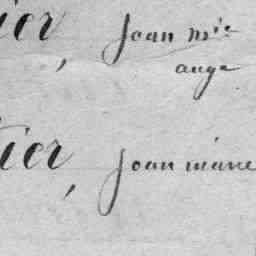 ier, Jean Mie
ange
tier, Jean marie